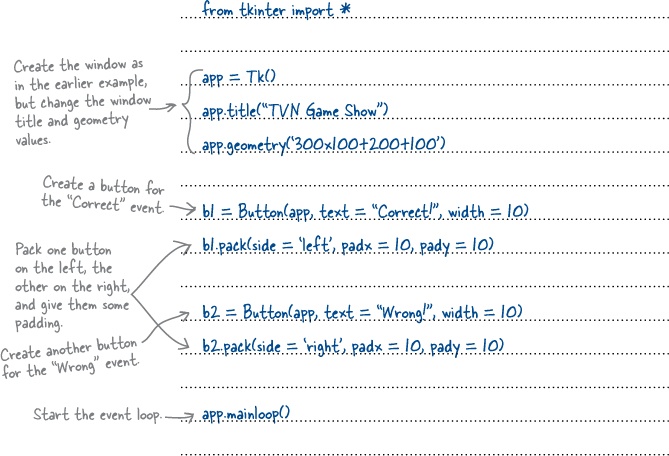 from tkinter import *
Create the window as
in the earlier example,
but change the window
title and geometry
values.
app = Tk()
app.title("TVN Game Show")
app.geometry('300x100+200+100')
Create a button for
the "Correct" event.
b1 = Button(app, text = "Correct!", width = 10)
b1.pack(side = 'left', padx = 10, pady = 10)
Pack one button
on the left, the
other on the right,
and give them some
padding.
b2 = Button(app, text = "Wrong!", width = 10)
b2.pack(side = 'right', padx = 10, pady = 10)
Create another button
for the "Wrong" event.
Start the event loop.
app.mainloop()